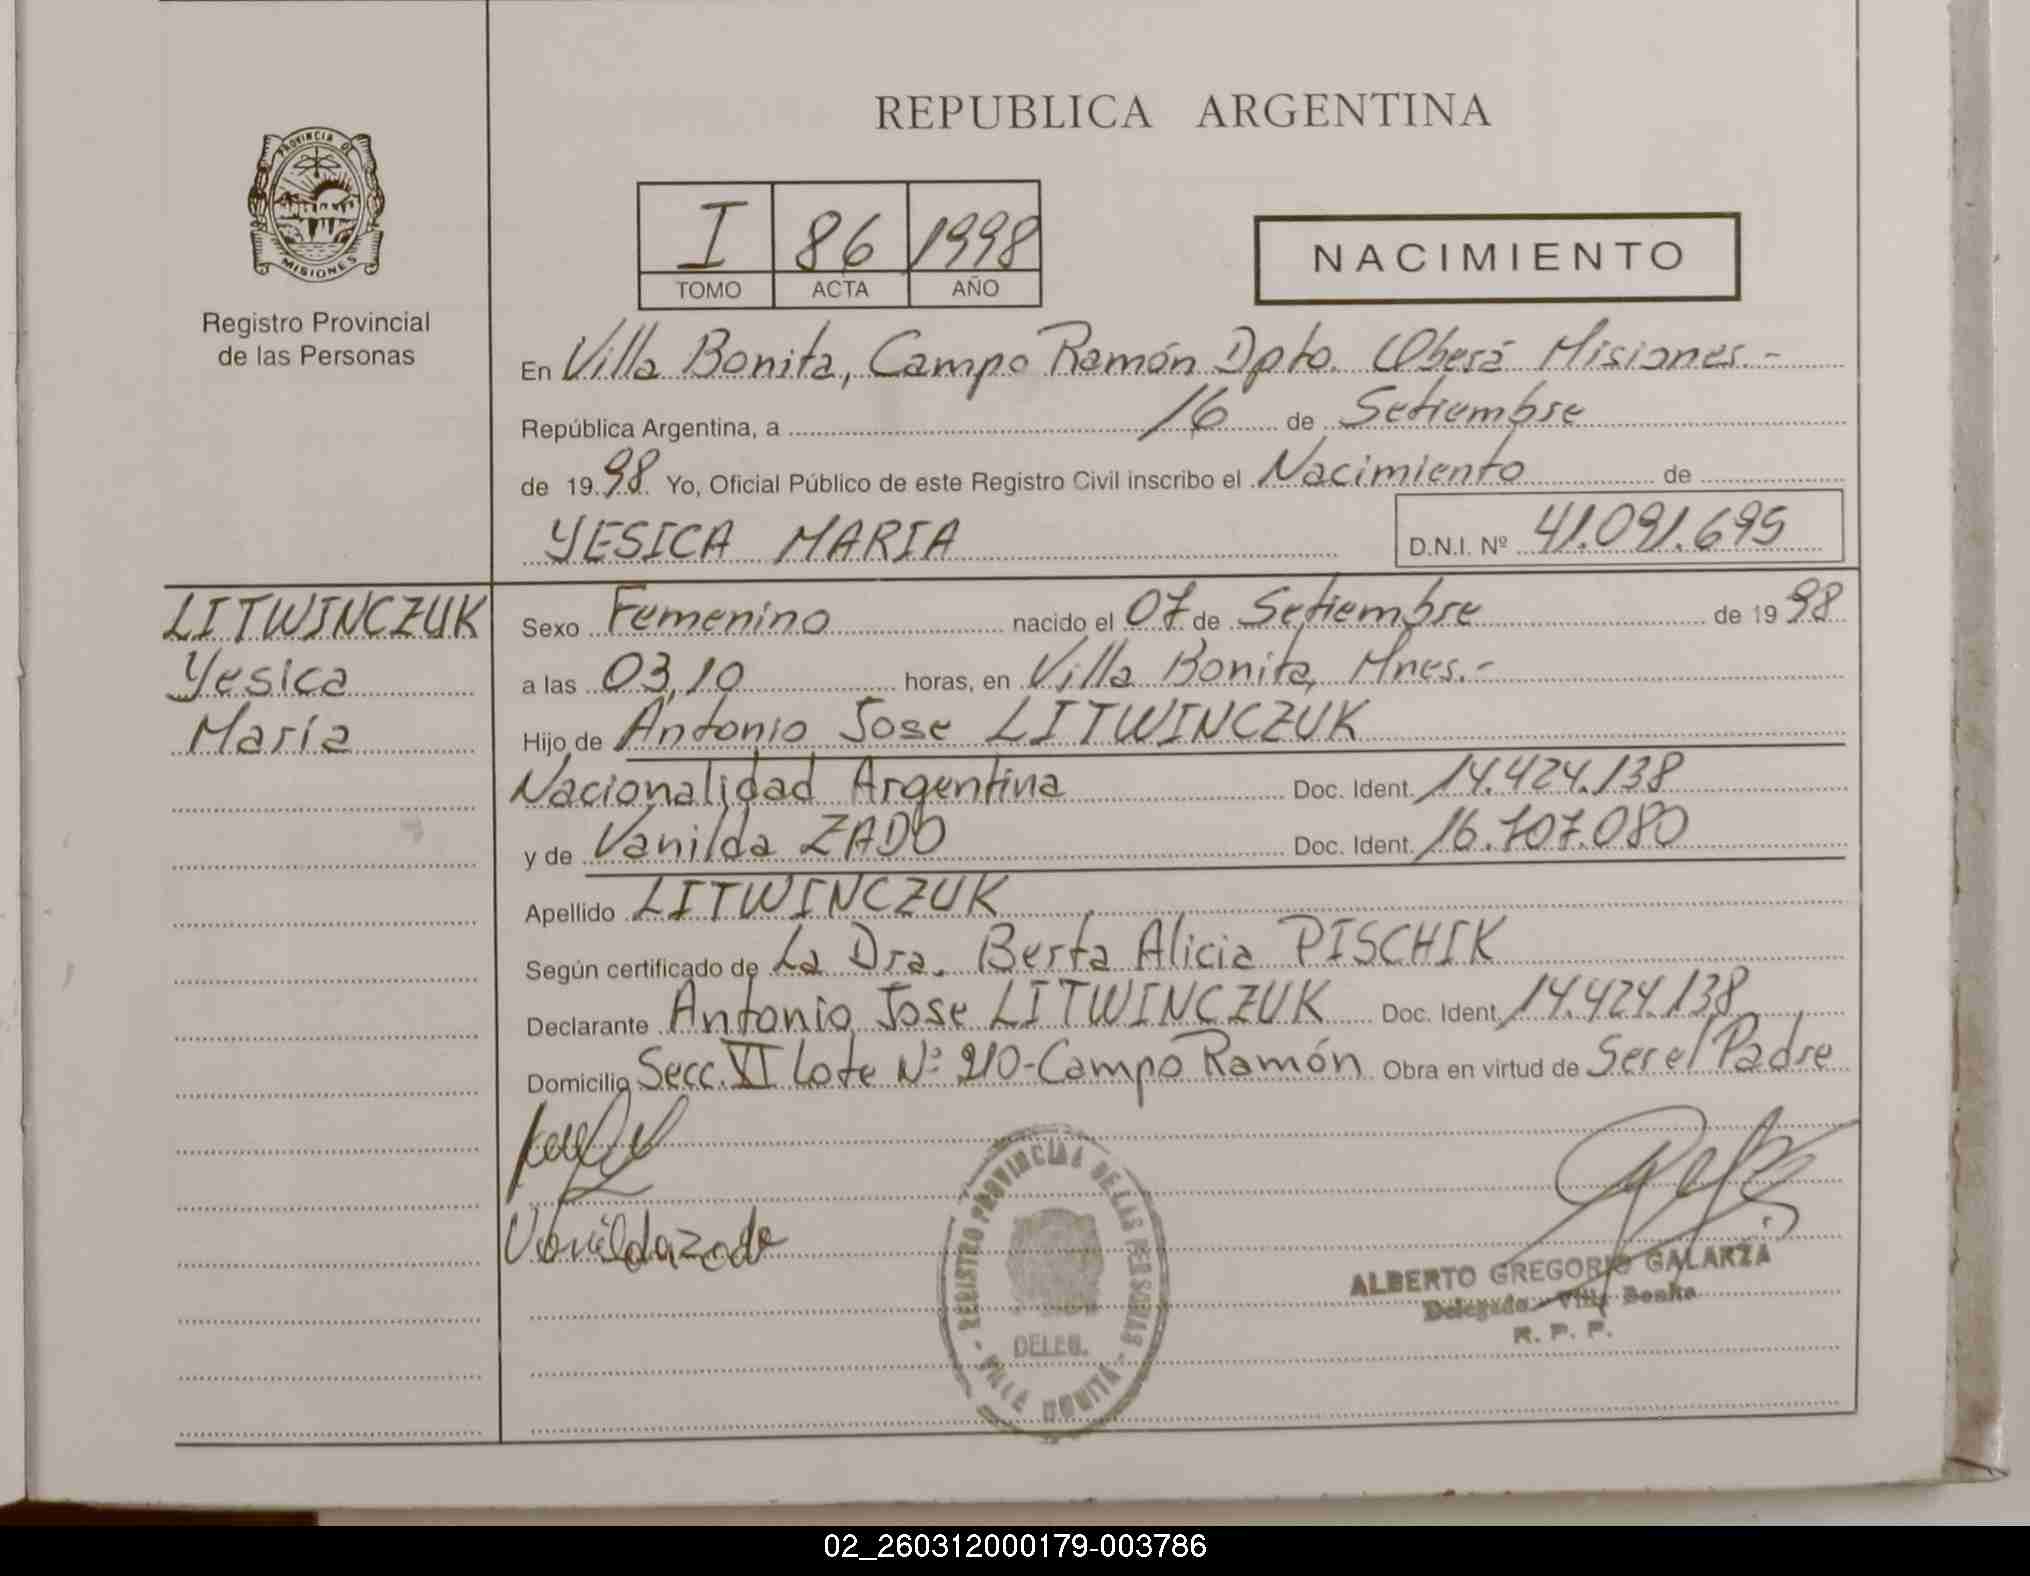 REPUBLICA ARGENTINA
PROVINCIA DE
MISIONES
Registro Provincial
de las Personas
I 86 1998
TOMO ACTA AÑO
NACIMIENTO
En Villa Bonita, Campo Ramón Dpto. Oberá Misiones.-
República Argentina, a 16 de Setiembre
de 1998 Yo, Oficial Público de este Registro Civil inscribo el Nacimiento de
YESICA MARIA D.N.I. Nº 41.091.695
LITWINCZUK
Yesica
María
Sexo Femenino nacido el 07 de Setiembre de 1998
a las 03,10 horas, en Villa Bonita, Mnes.-
Hijo de Antonio Jose LITWINCZUK
Nacionalidad Argentina Doc. Ident. 14.424.138
y de Vanilda ZADO Doc. Ident. 16.707.080
Apellido LITWINCZUK
Según certificado de La Dra. Berta Alicia PISCHIK
Declarante Antonio Jose LITWINCZUK Doc. Ident. 14.424.138
Domicilio Secc. VI Lote Nº 210-Campo Ramón Obra en virtud de Ser el Padre
Vanilda zado
REGISTRO PROVINCIAL DE LAS PERSONAS
DELEG.
- VILLA BONITA -
ALBERTO GREGORIO GALARZA
Delegado - Villa Bonita
R. P. P.
02_260312000179-003786